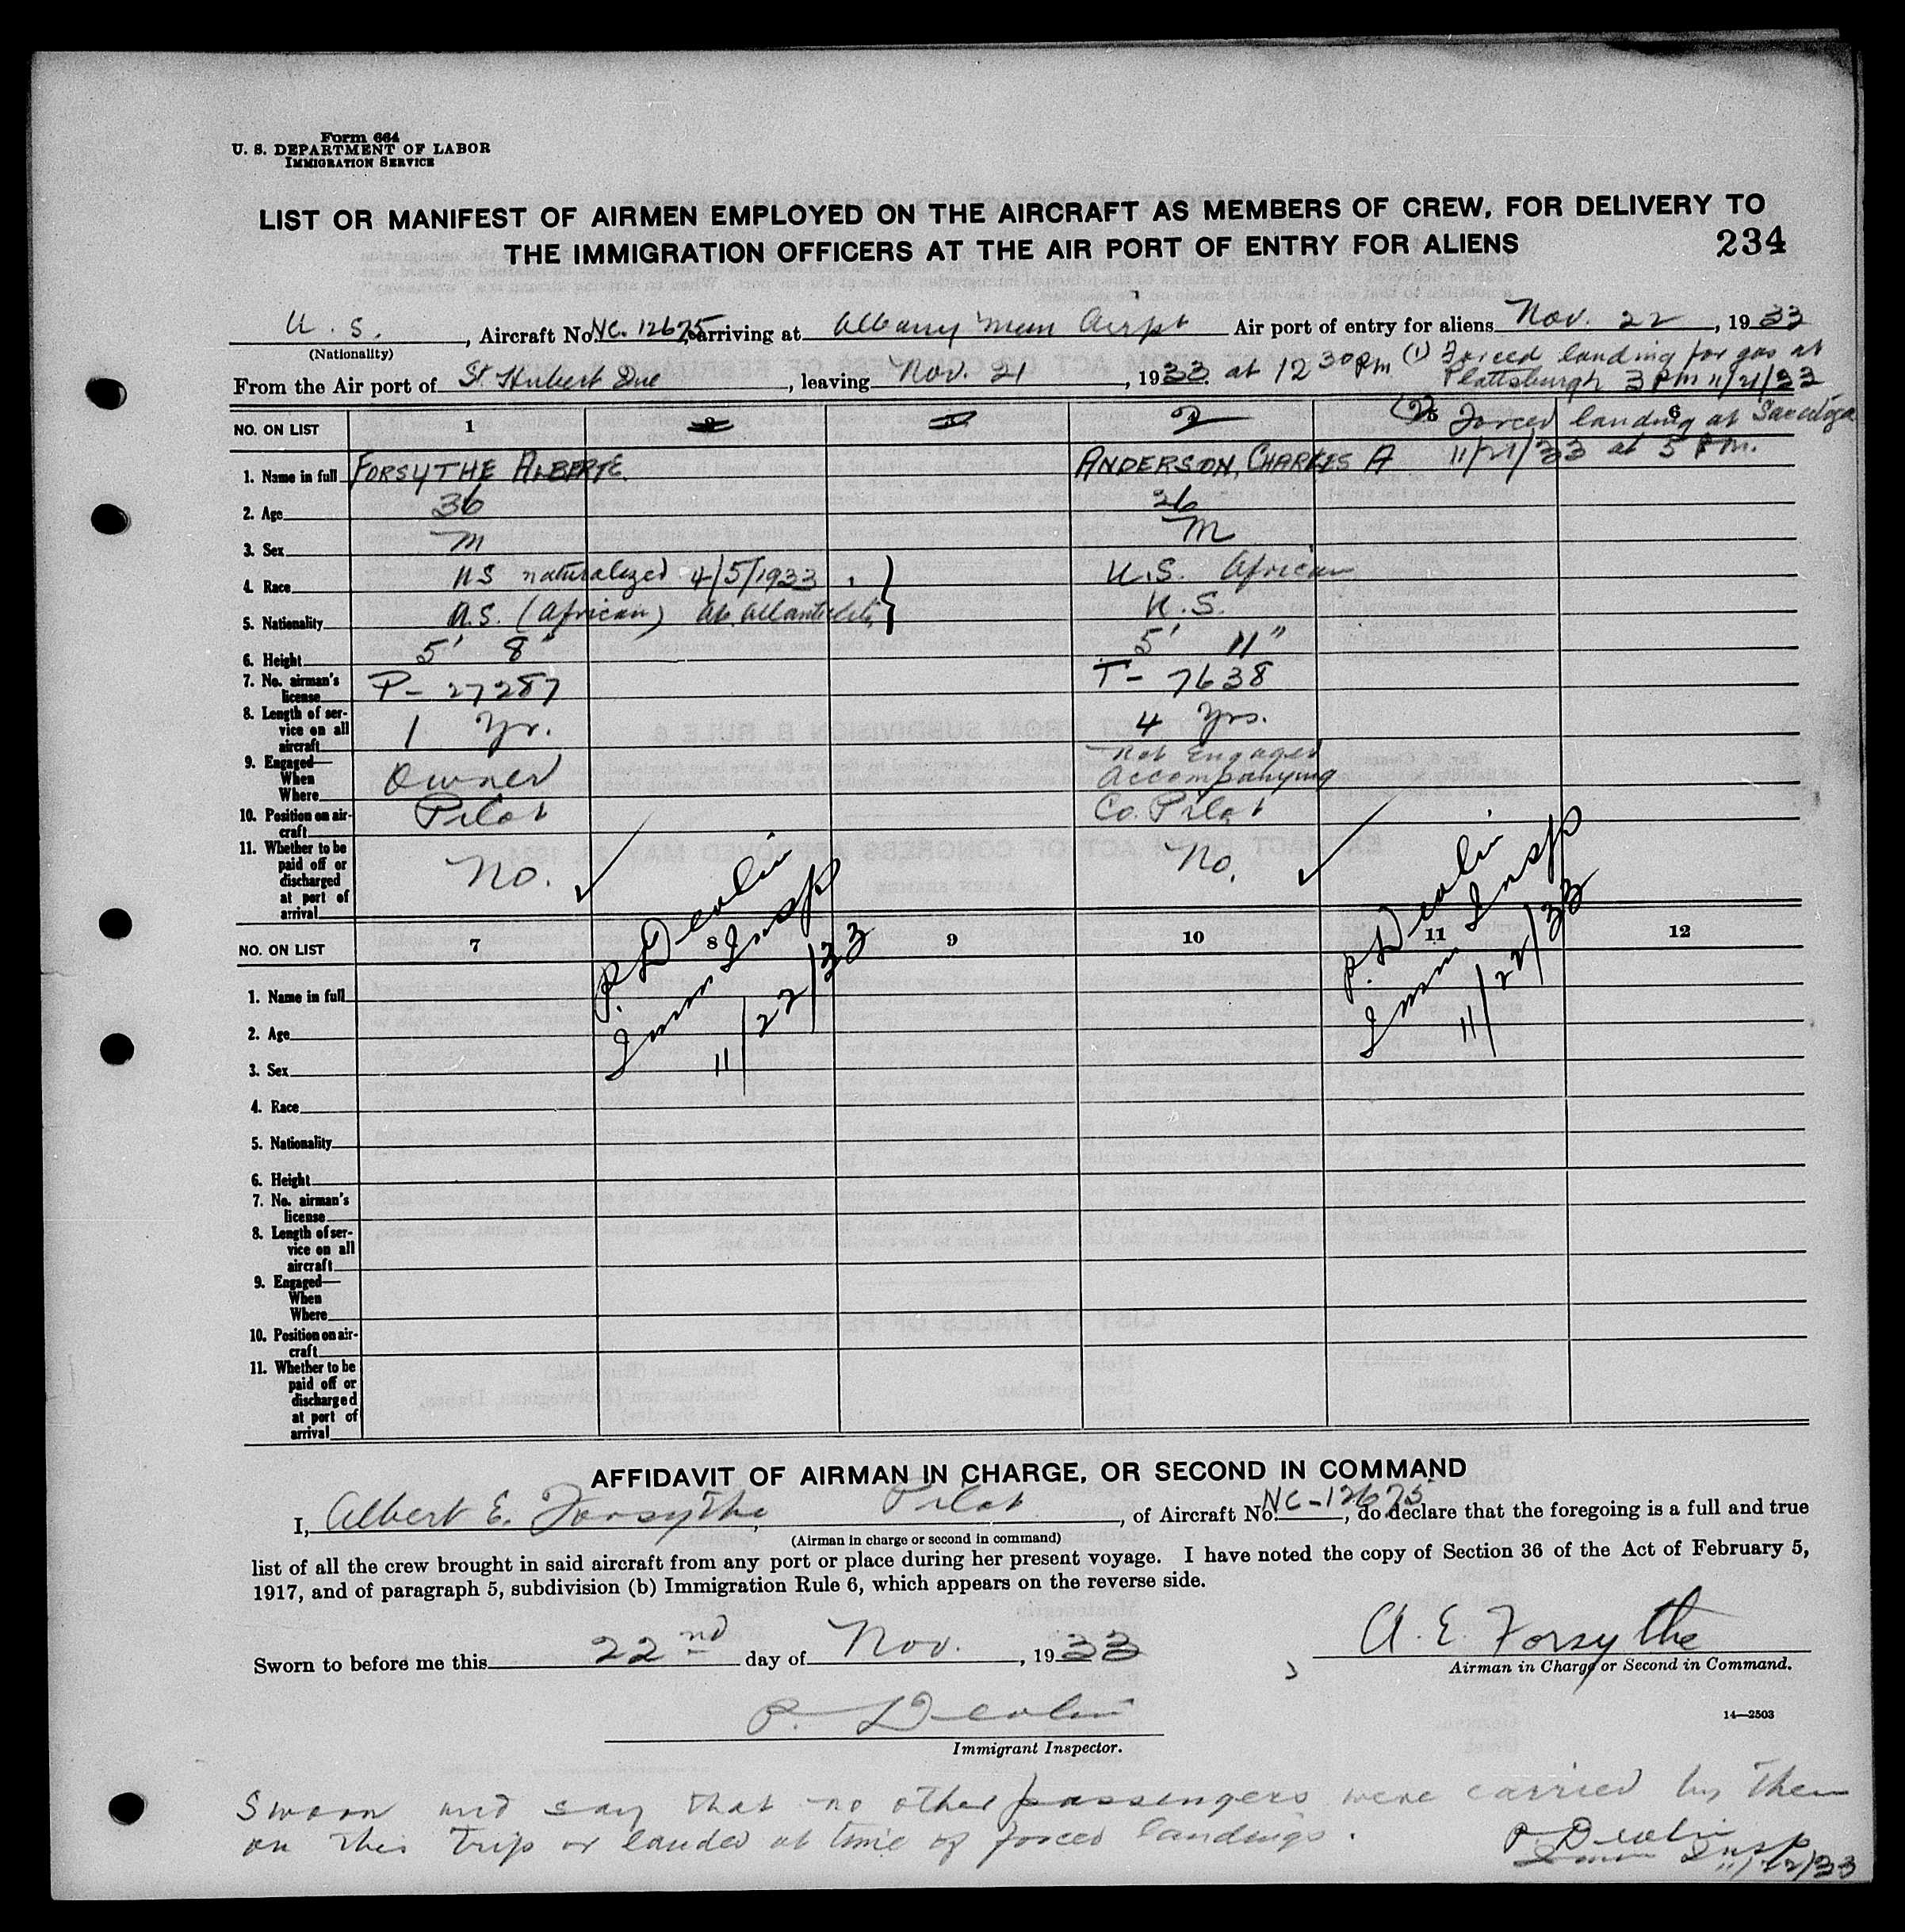 Form 664
U. S. DEPARTMENT OF LABOR
IMMIGRATION SERVICE
LIST OR MANIFEST OF AIRMEN EMPLOYED ON THE AIRCRAFT AS MEMBERS OF CREW, FOR DELIVERY TO
THE IMMIGRATION OFFICERS AT THE AIR PORT OF ENTRY FOR ALIENS
234
U. S., Aircraft No. NC. 12675, arriving at Albany Mun Airpt Air port of entry for aliens Nov. 22, 1933
(Nationality)
From the Air port of St. Hubert Que, leaving Nov. 21, 1933 at 12 30 PM (1) Forced landing for gas at
Plattsburgh 3 PM 11/21/33
NO. ON LIST 1 2 6 (2) Forced landing at Saratoga
11/21/33 at 5 PM.
1. Name in full FORSYTHE ALBERT E. ANDERSON, CHARLES A
2. Age 36 26
3. Sex M M
4. Race US naturalized 4/5/1933 U.S. African
5. Nationality U.S. (African) At Atlantic City U.S.
6. Height 5' 8" 5' 11"
7. No. airman's license P-27287 T-7638
8. Length of service on all aircraft 1 Yr. 4 Yrs.
9. Engaged— When Where Owner Not Engaged Accompanying
10. Position on aircraft Pilot Co. Pilot
11. Whether to be paid off or discharged at port of arrival No. No.
P. Devlin
Imm Insp
11/22/33
P. Devlin
Imm Insp
11/22/33
NO. ON LIST 7 8 9 10 11 12
1. Name in full
2. Age
3. Sex
4. Race
5. Nationality
6. Height
7. No. airman's
license
8. Length of ser-
vice on all
aircraft
9. Engaged—
When
Where
10. Position on air-
craft
11. Whether to be
paid off or
discharged
at port of
arrival
AFFIDAVIT OF AIRMAN IN CHARGE, OR SECOND IN COMMAND
I, Albert E. Forsythe, Pilot, of Aircraft No. NC-12675, do declare that the foregoing is a full and true
(Airman in charge or second in command)
list of all the crew brought in said aircraft from any port or place during her present voyage. I have noted the copy of Section 36 of the Act of February 5,
1917, and of paragraph 5, subdivision (b) Immigration Rule 6, which appears on the reverse side.
Sworn to before me this 22nd day of Nov., 1933
A. E. Forsythe
Airman in Charge or Second in Command.
P. Devlin
Immigrant Inspector.
14—2503
Sworn and say that no other passengers were carried by them
on this trip or landed at time of forced landings.
P Devlin
Imm Insp
11/22/33